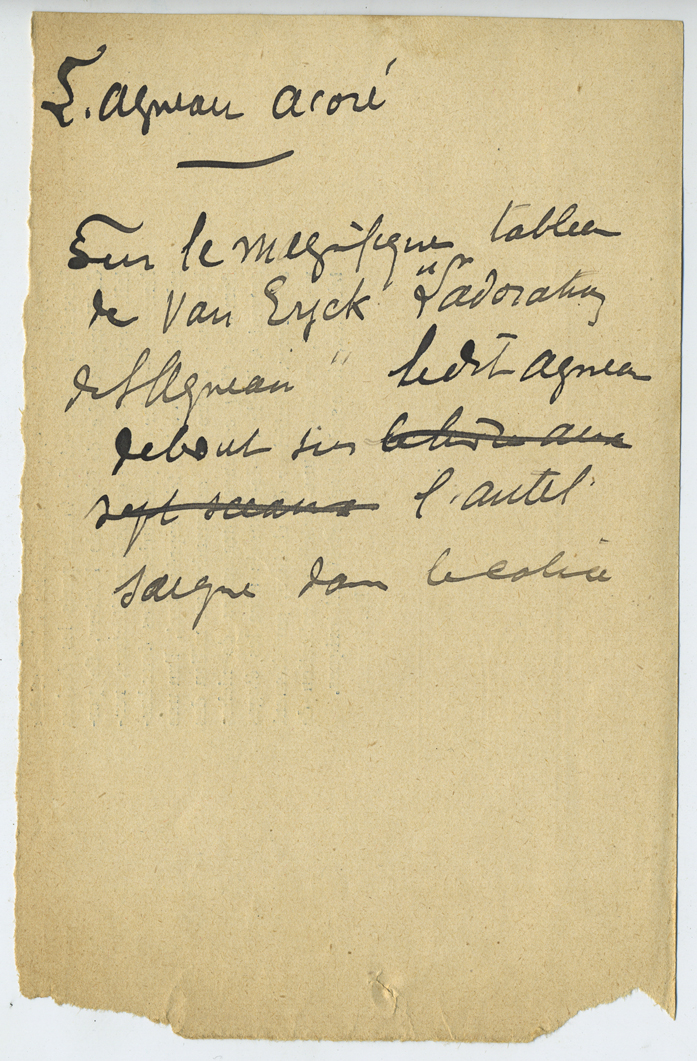 L'agneau acoré
Sur le magnifique tableau
de Van Eyck "L'adoration
de l'Agneau" ledit agneau
debout sur le livre aux
sept sceaux l'autel
saigne dans le calice